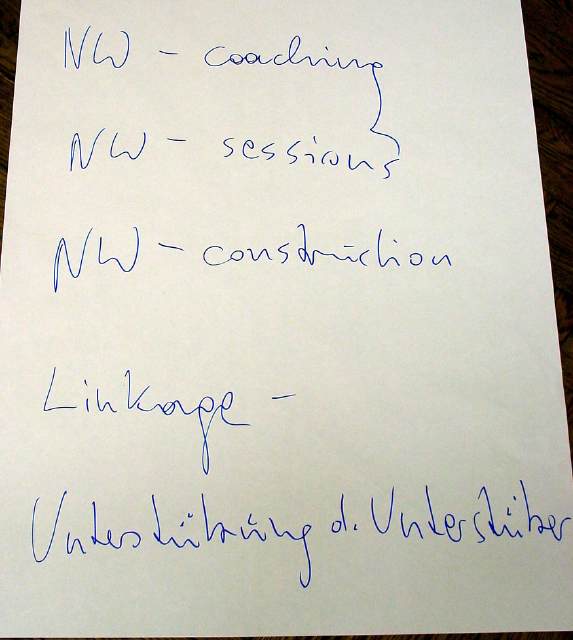 NW - coaching
NW - sessions
NW - construction
Linkage -
Unterstützung d. Unterstützer